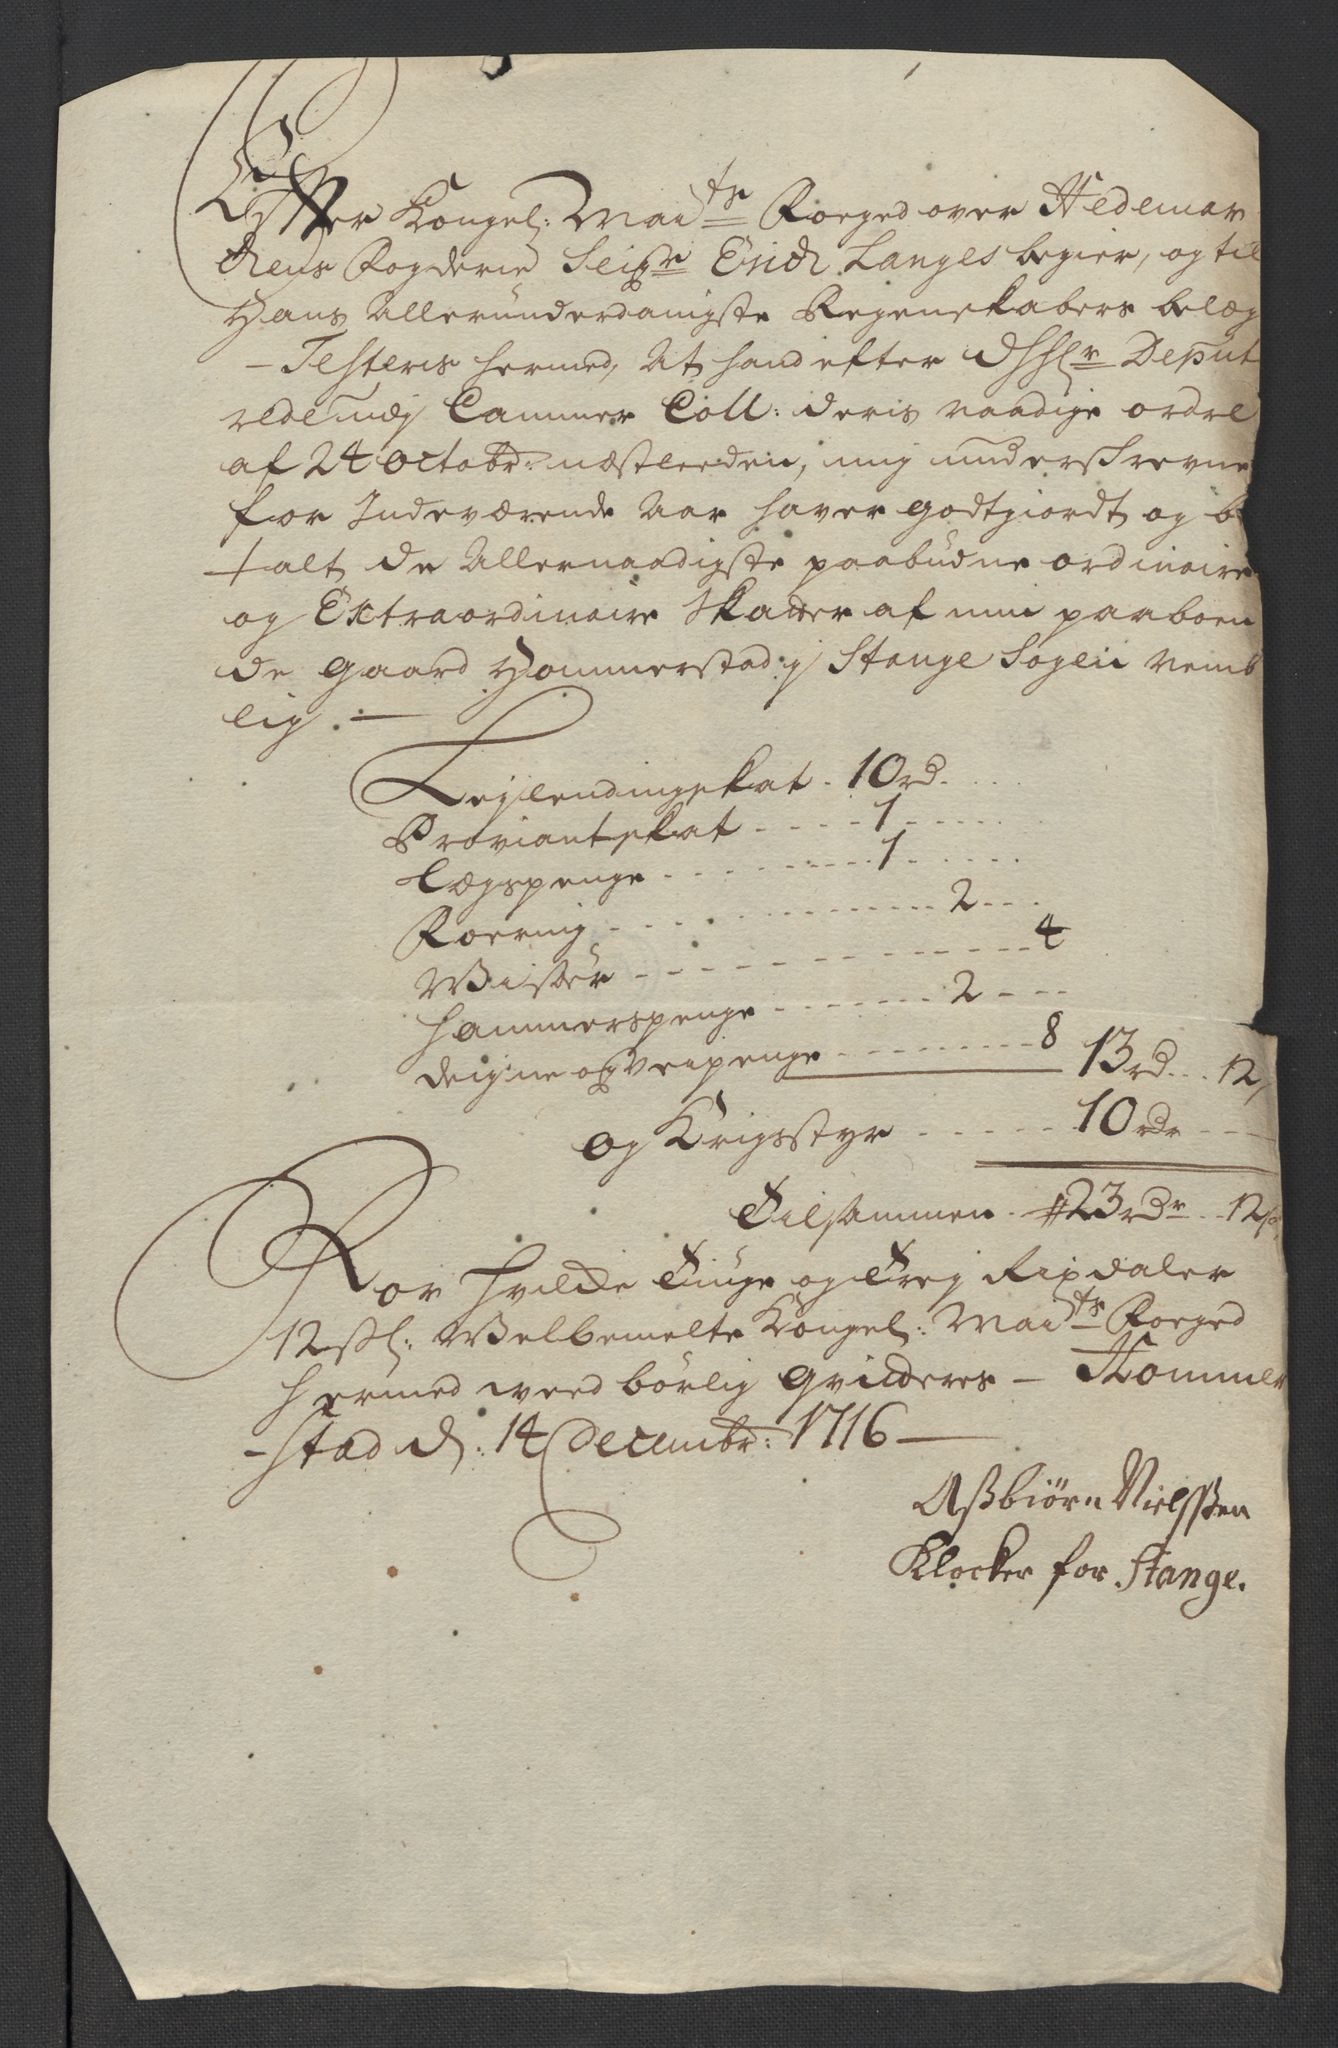 Effter Kongel: Maj:ts Foeged over Hedemar
ckens Fogderie Seig:r Erich Langes begier, og til
Hans Allerunderdanigste Regenskabers belæg
- Testeris hermed, At hand efter Deput
rede udj Cammer Coll: deris naadige ordre
af 24 Octobr: næstleeden, mig underskrevne
for Indeværende Aar haver godtgiordt og be
talt de Allernaadigste paabudne ordinaire
og Extraordinaire Skatter af min paaboen
de gaard Hommerstad j Stange Sogen Nemb
lig: -
Leylendingskat . 10 rd. . .
Proviantskat . . . . . 1 . . . .
Lægspenge . . . . . . 1 . . . .
Foering . . . . . . . . 2 . . .
Wisøer . . . . . . . . . . 4
Hammerspenge . . . . . . 2 - -
deigne og Veipenge . . . . . . 8 13 rd. . . 12
og Krigsstyr . . . . . 10 rdr - -
Tilsammen . # 23 rdr . . 12 s
For hvilcke Tiuge og Trej Rixdaler
12 sl: Welbemelte Kongel: Maj:ts Foeged
hermed vved börlig qvitteres - Hommer
- stad d: 14 Decembr: 1716 -
Aßbiörn Nielsßen
Klocker for Stange.